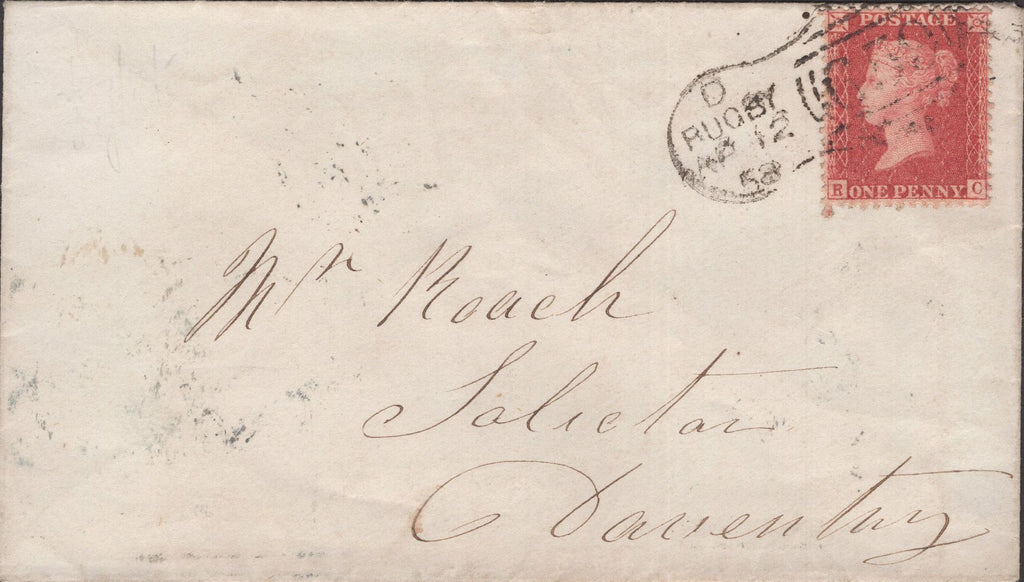 POSTAGE
R ONE PENNY C
D
RUGBY
AP 12
58
Mr Roach
Solictor
Daventry